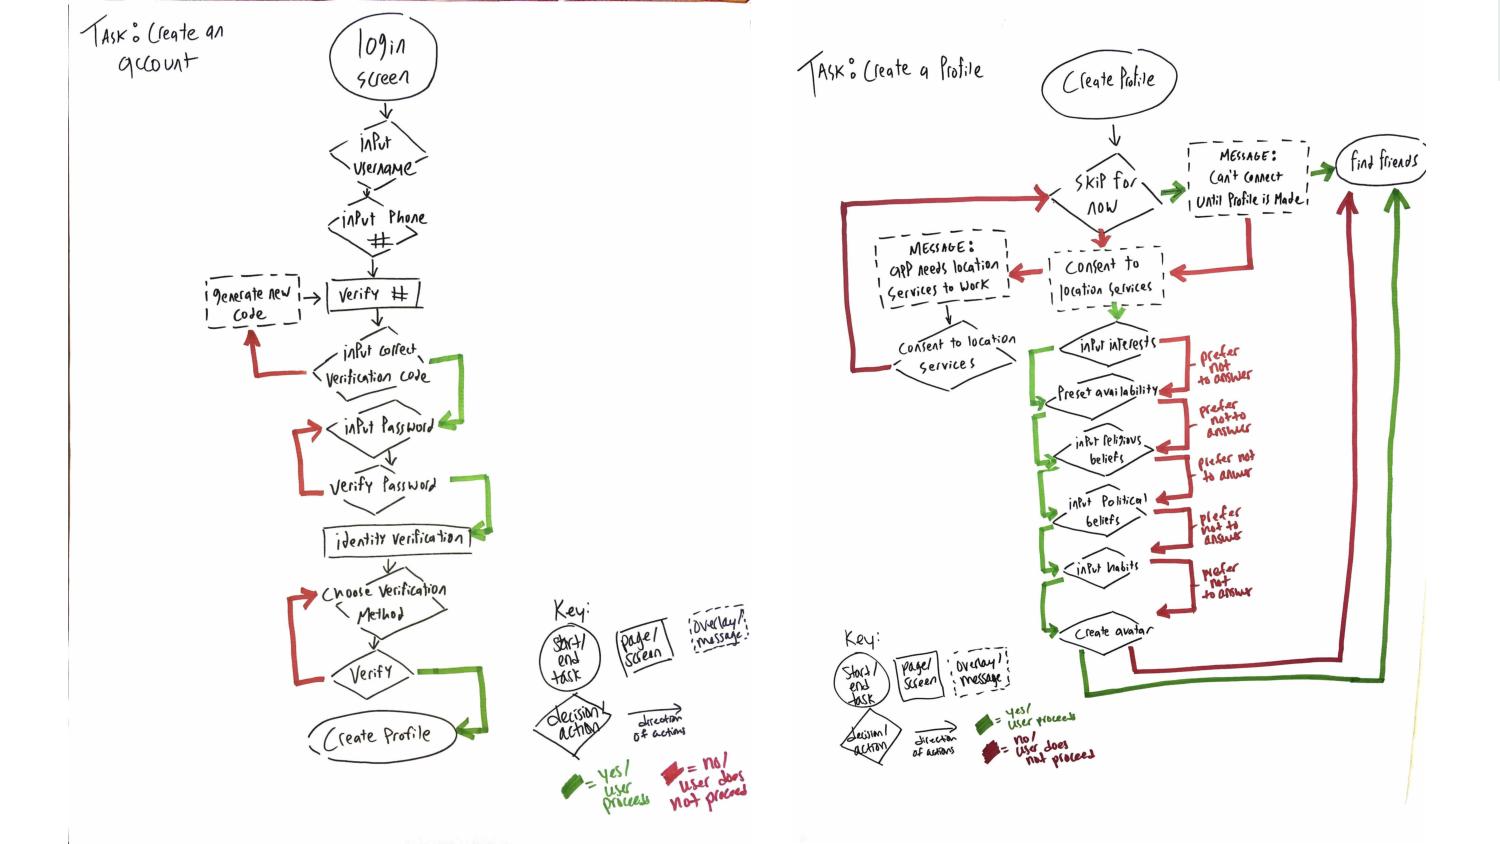 TASK: Create an
account
login
screen
input
username
input Phone
#
Verify #
generate new
code
input correct
verification code
input Password
Verify Password
identity verification
Choose Verification
Method
Verify
Create Profile
Key:
start/
end
task
page/
screen
overlay/
message
decision/
action
direction
of actions
= yes/
user
proceeds
= no/
user does
not proceed
TASK: Create a Profile
Create Profile
SKIP for
now
MESSAGE:
Can't connect
Until Profile is Made
find friends
MESSAGE:
app needs location
Services to work
Consent to
location services
Consent to location
services
input interests
prefer
not
to answer
Preset availability
prefer
not to
answer
input religious
beliefs
prefer not
to answer
input Political
beliefs
prefer
not to
answer
input habits
prefer
not
to answer
Create avatar
Key:
Start/
end
task
page/
screen
overlay/
message
decision/
action
direction
of actions
= yes/
user proceeds
= no/
user does
not proceed